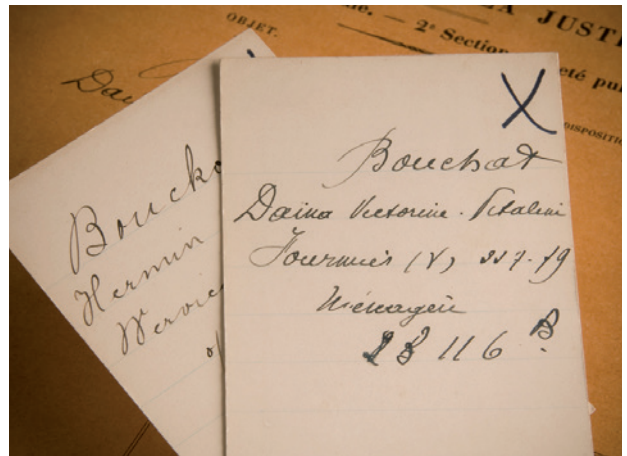 A JUSTI
OBJET.
2e Section
eté pu
DISPOSITIO
Dai
Bouch
Hermin
Wervic
X
Bouchat
Daina Victorine-Vitaline
Fournier (V) 227-79
Ménagère
28 116 B.